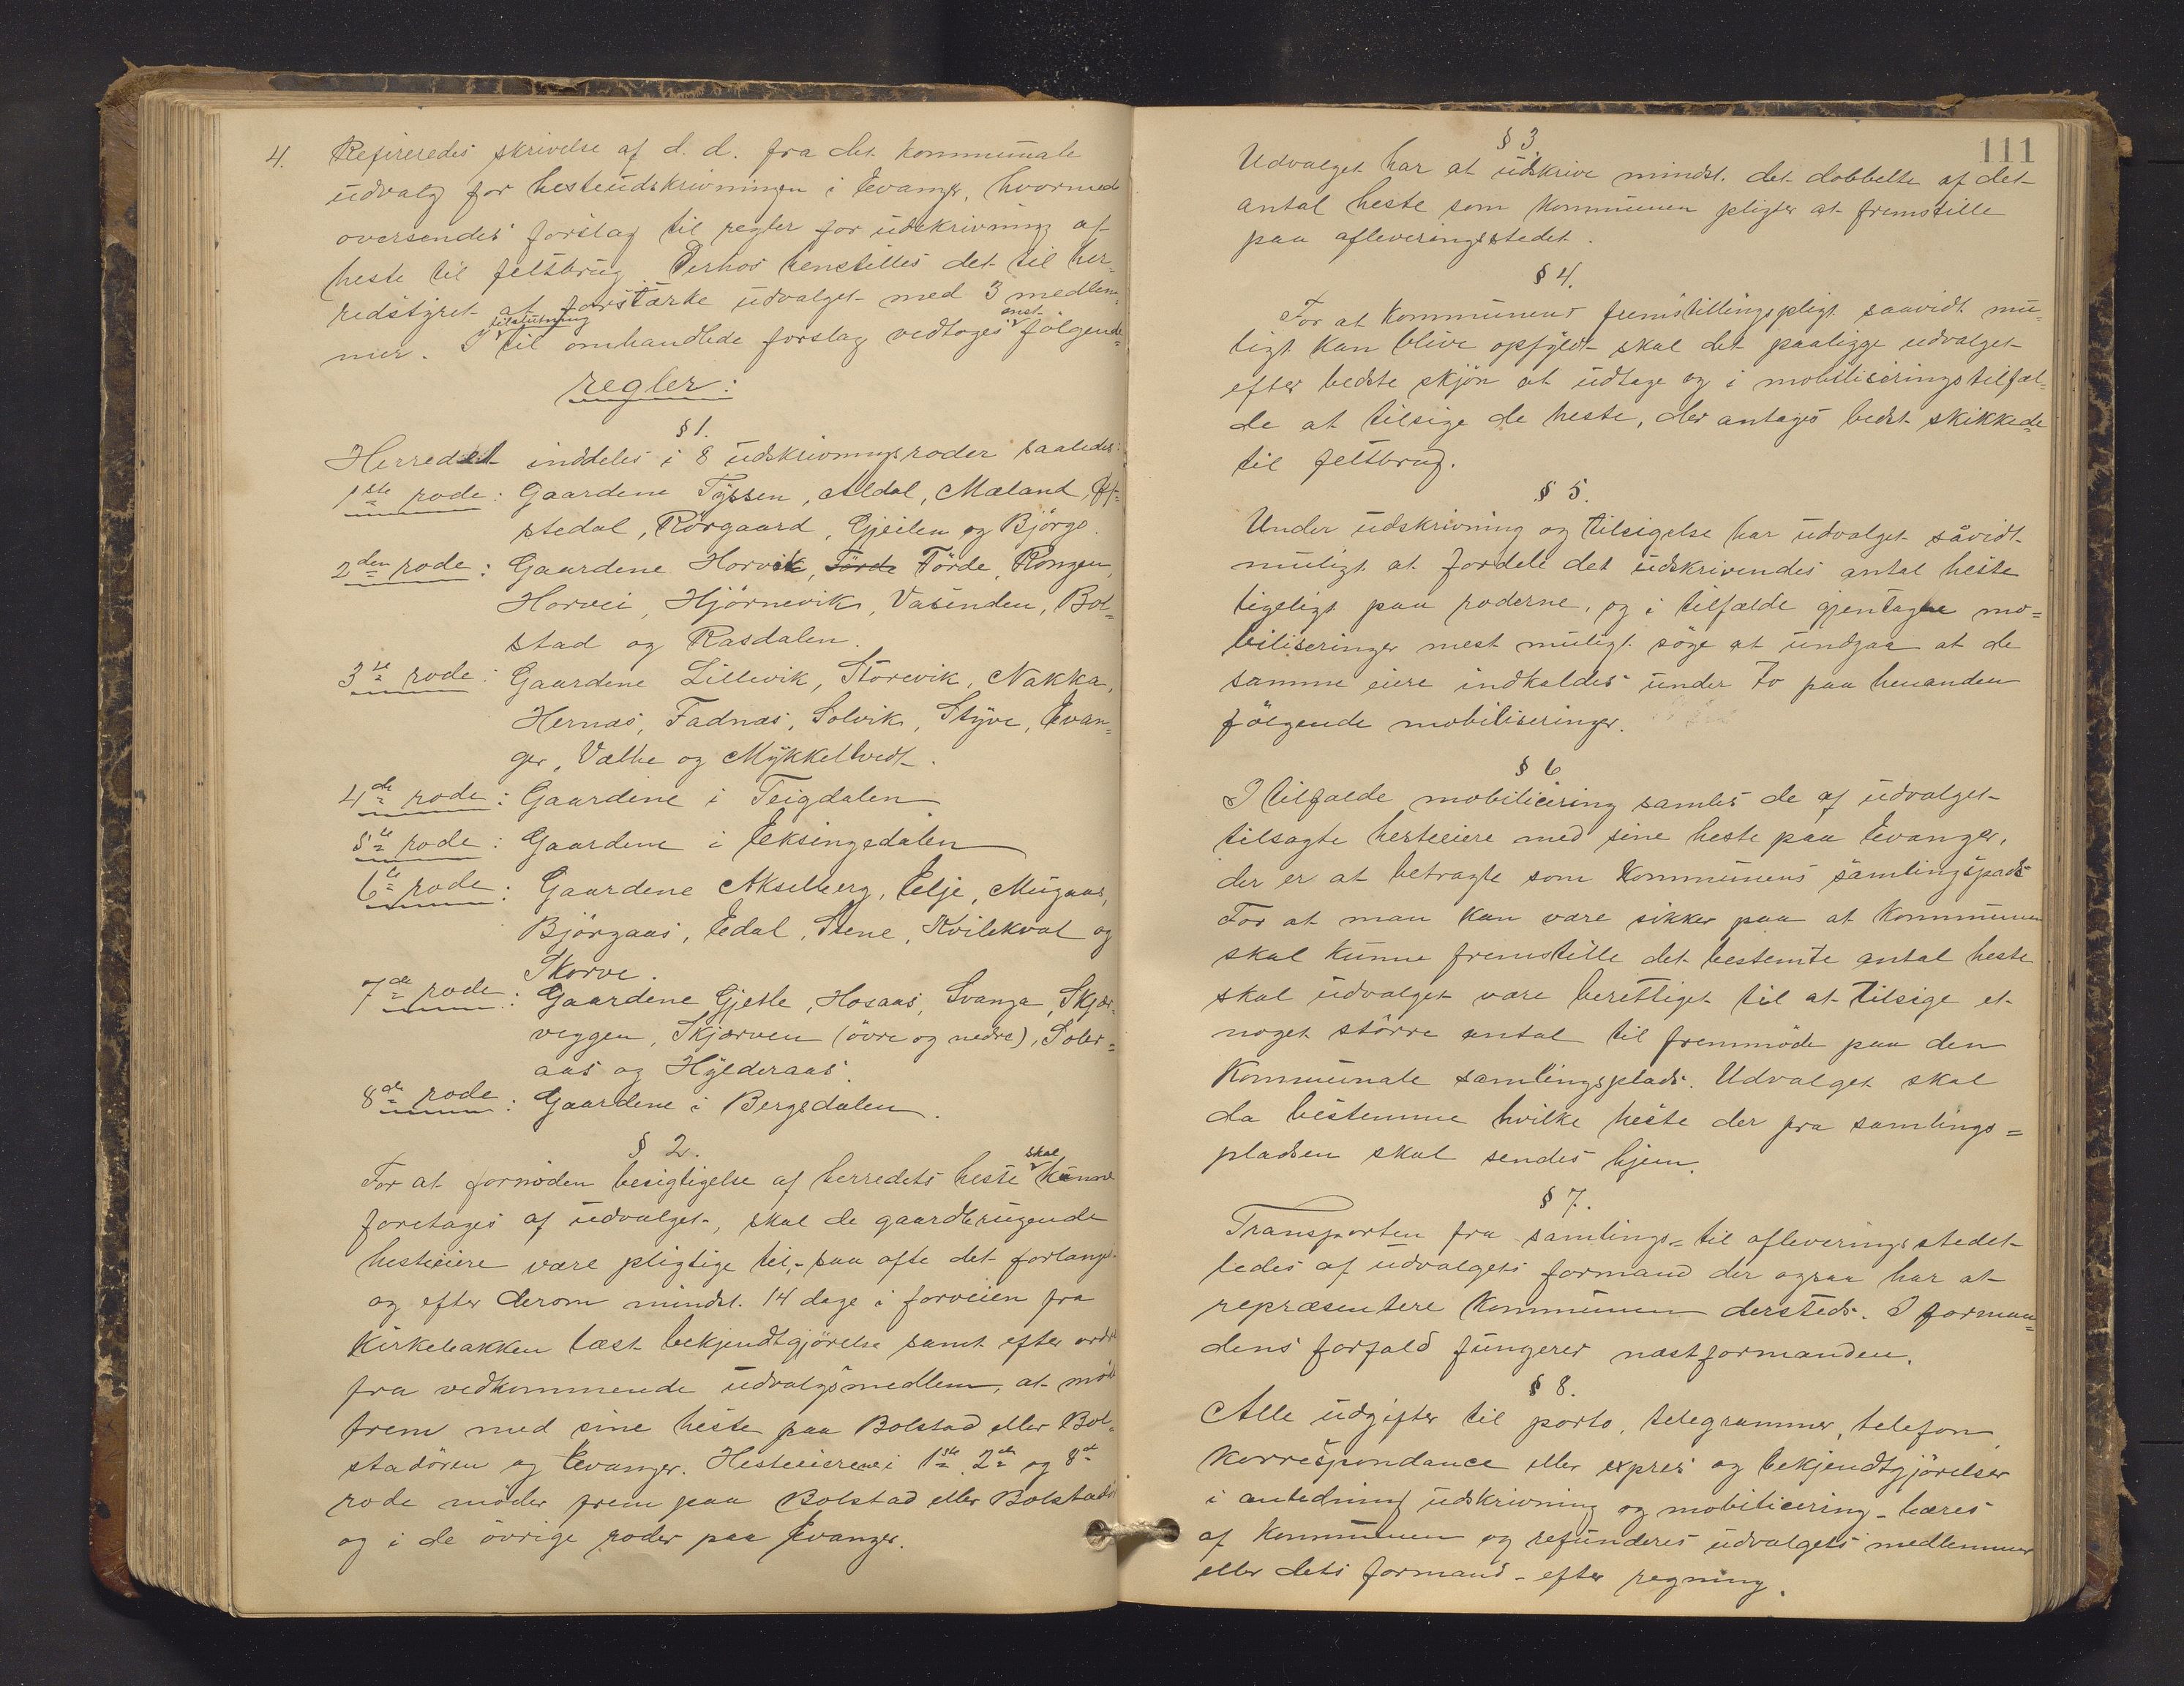 4. Refereredes skrivelse af d. d. fra det kommunale
udvalg for hesteudskrivningen i Evanger, hvormed
oversendes forslag til regler for udskrivning af
heste til feltbrug. Derhos henstilles det til her-
redstyret at forstærke udvalget med 3 medlem-
mer. I tilslutning til omhandlede forslag vedtoges enst. følgende
regler:
§ 1.
Herredet inddeles i 8 udskrivningsroder saaledes:
1ste rode: Gaardene Tyssen, Aldal, Mæland,
stedal, Rørgaard, Gjeilen og Bjørgo.
2den rode: Gaardene Horvik, Førde Førde, Rongen,
Horvei, Hjørnevik, Vasenden, Bol-
stad og Rasdalen.
3de rode: Gaardene Lillevik, Storevik, Nakka,
Hernæs, Fadnæs, Solvik, Styve, Evan-
ger, Vælhe og Mykkeltvedt.
4de rode: Gaardene i Teigdalen
5te rode: Gaardene i Eksingedalen
6te rode: Gaardene Akselberg, Elje, Mugaas,
Bjørgaas, Edal, Stene, Kvilekval og
Skorve.
7de rode: Gaardene Gjetle, Hosaas, Svanga, Skjer-
veggen, Skjerven (øvre og nedre), Soler-
aas og Hylderaas.
8de rode: Gaardene i Bergsdalen.
§ 2.
For at fornøden besigtigelse af herredets heste skal kunne
foretages af udvalget, skal de gaardbrugende
hesteeiere være pligtige til, - saa ofte det forlanges
og efter derom mindst. 14 dage i forveien fra
Kirkebakken læst bekjendtgjørelse samt efter ordre
fra vedkommende udvalgsmedlem, at møde
frem med sine heste paa Bolstad eller Bol-
stadøren og Evanger. Hesteeierne i 1ste 2den og 8de
rode møder frem paa Bolstad eller Bolstadø
og i de øvrige roder paa Evanger.
111
§ 3
Udvalget har at udskrive mindst. det dobbelte af det
antal heste som kommunen pligter at fremstille
paa afleveringsstedet.
§ 4.
For at kommunens fremstillingspligt saavidt mu-
ligt kan blive opfyldt skal det paaligge udvalget
efter bedste skjøn at udtage og i mobiliseringstilfæl-
de at tilsige de heste, der antages bedst skikkede
til feltbrug.
§ 5.
Under udskrivning og tilsigelse har udvalget såvidt
muligt at fordele det udskrivendes antal heste
ligeligt paa roderne, og i tilfælde gjentagne mo-
biliseringer mest muligt søge at undgaa at de
samme eiere indkaldes under to paa hinanden
følgende mobiliseringer.
§ 6
I tilfælde mobilicering samles de af udvalget
tilsagte hesteeiere med sine heste paa Evanger,
der er at betragte som kommunens samlingspads
For at man kan være sikker paa at kommunen
skal kunne fremstille det bestemte antal heste
skal udvalget være berettiget til at tilsige et
noget større antal til fremmøde paa den
kommunale samlingsplads. Udvalget skal
da bestemme hvilke heste der fra samlings-
pladsen skal sendes hjem.
§ 7.
Transporten fra samlings- til afleveringsstedet
ledes af udvalgets formand der ogsaa har at
repræsentere kommunen dersteds. I forman-
dens forfald fungerer næstformanden.
§ 8.
Alle udgifter til porto, telegrammer, telefon,
korrespondance eller expres og bekjendtgjørelser
i anledning udskrivning og mobilicering - bæres
af kommunen og refunderes udvalgets medlemmer
eller dets formand - efter regning.